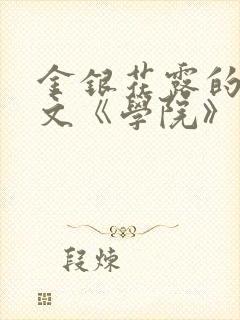 金銀花露的
文《學院》
段煉